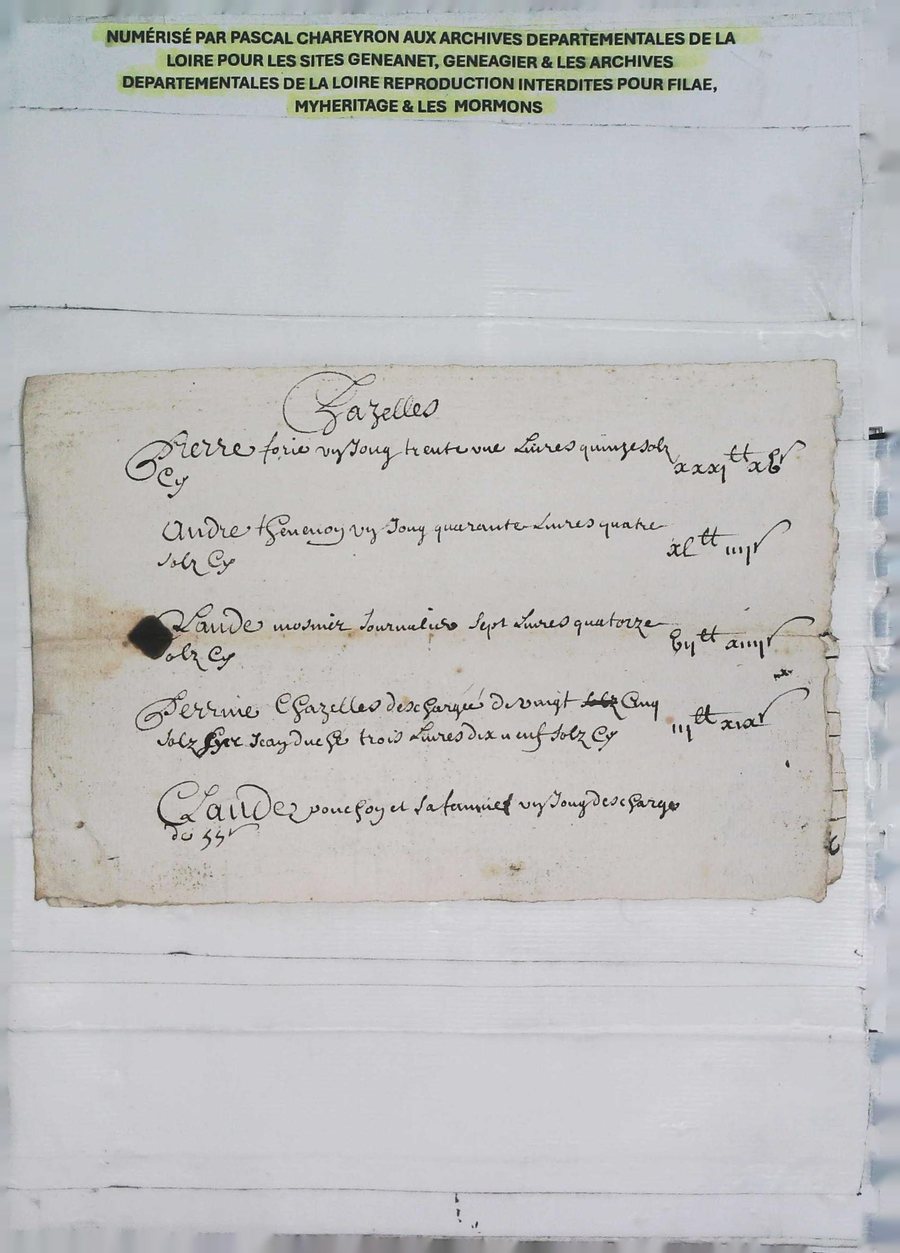 NUMÉRISÉ PAR PASCAL CHAREYRON AUX ARCHIVES DEPARTEMENTALES DE LA
LOIRE POUR LES SITES GENEANET, GENEAGIER & LES ARCHIVES
DEPARTEMENTALES DE LA LOIRE REPRODUCTION INTERDITES POUR FILAE,
MYHERITAGE & LES MORMONS
Chazelles
Pierre forie trente une Livres quinze solz
Cy xxxj tt xv s
Andre thevenon quarante Livres quatre
solz Cy xl tt iiij s
Claude mosnier Journalier sept Livres quatorze
solz Cy vij tt xiiij s
Perrine Chazelles deschargée de vingt solz Cinq
solz trois Livres dix neuf solz Cy iij tt xix s
Claude ponchon et sa femme descharge
de 55 s